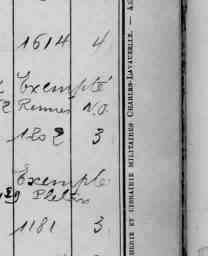 1614 4
Exempté
Rennes N.O.
1202 3
Exempté
1181 3
HERIE ET LIBRAIRIE MILITAIRES CHARLES-LAVAUZELLE. —